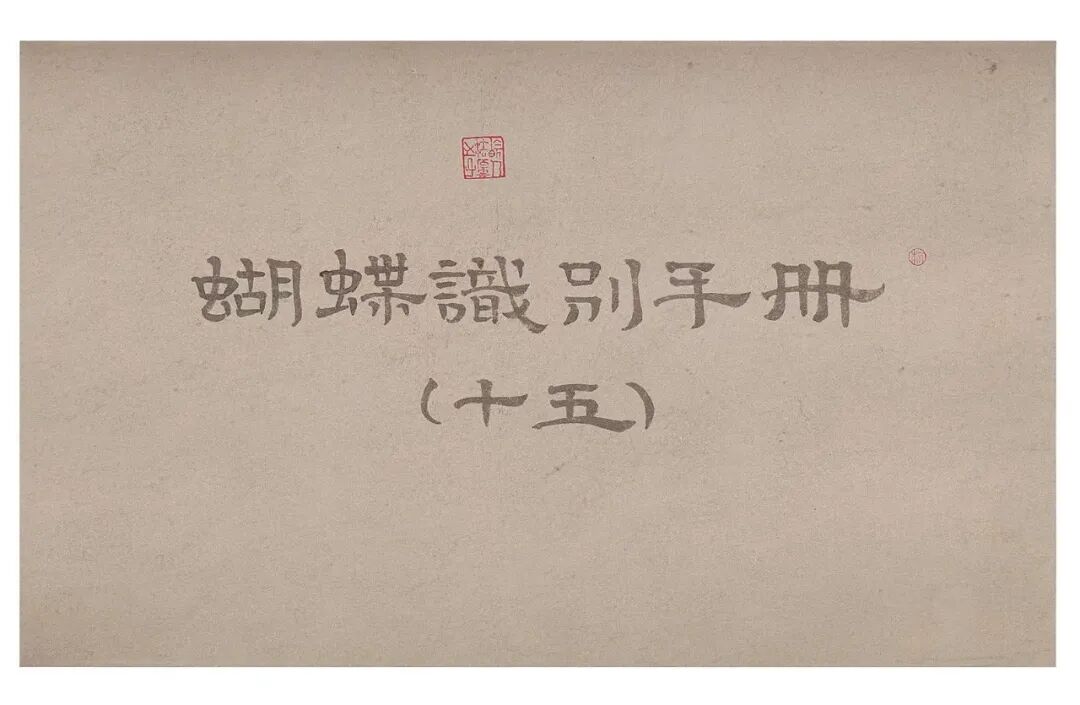 蝴蝶識別手册
(十五)